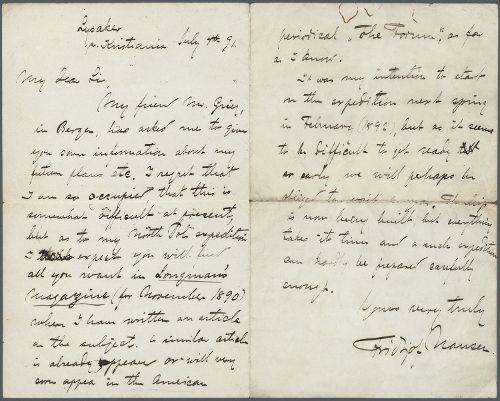 Lysaker
pr. Kristiania July 4th 91.
My dear Sir
My friend Mr. Grieg,
in Bergen, has asked me to give
you some information about my
future plans etc. I regret that
I am so occupied that this is
somewhat difficult at present,
but as to my North Pole expedition
I expect you will find
all you want in Longman's
Magazine (for November 1890)
where I have written an article
on the subject. A similar article
is already appear or will very
soon appear in the American
periodical "The Forum", as far
as I know.
It was my intention to start
on the expedition next spring
in February (1892) but as it seems
to be difficult to get ready
so early, we will perhaps be
obliged to wait a year. The ship
is now being built but everything
takes its time and a such expedition
can hardly be prepared carefully
enough.
Yours very truly
Fridtjof Nansen.